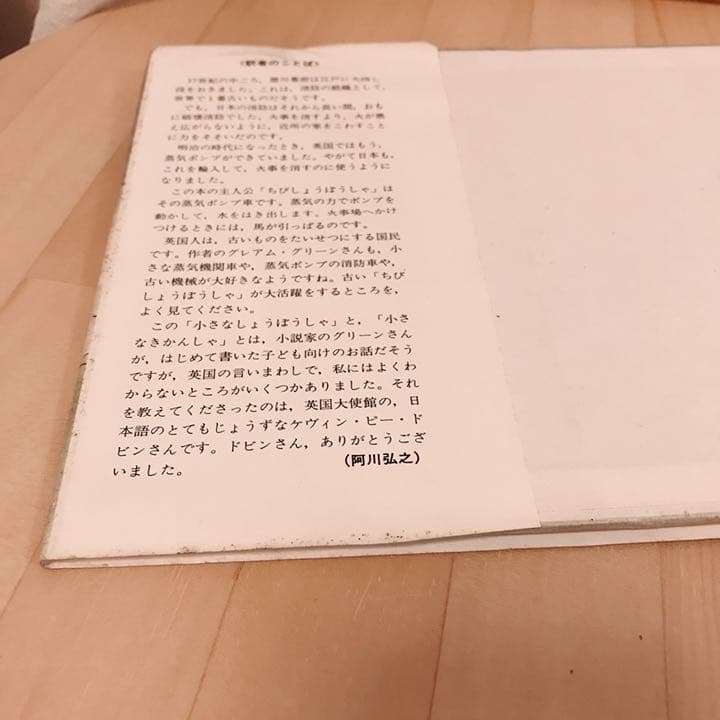 〈訳者のことば〉
17世紀の中ころ，徳川幕府は江戸に火消し
役をおきました。これは，消防の組織として，
世界で1番古いものだそうです。
でも，日本の消防はそれから長い間，おも
に破壊消防でした。火事を消すより，火が燃
え広がらないように，近所の家をこわすこと
に力をそそいだのです。
明治の時代になったとき，英国ではもう，
蒸気ポンプができていました。やがて日本も，
これを輸入して，火事を消すのに使うように
なりました。
この本の主人公「ちびしょうぼうしゃ」は
その蒸気ポンプ車です。蒸気の力でポンプを
動かして，水をはき出します。火事場へかけ
つけるときには，馬が引っぱるのです。
英国人は，古いものをたいせつにする国民
です。作者のグレアム・グリーンさんも，小
さな蒸気機関車や，蒸気ポンプの消防車や，
古い機械が大好きなようですね。古い「ちび
しょうぼうしゃ」が大活躍をするところを，
よく見てください。
この「小さなしょうぼうしゃ」と，「小さ
なきかんしゃ」とは，小説家のグリーンさん
が，はじめて書いた子ども向けのお話だそう
ですが，英国の言いまわしで，私にはよくわ
からないところがいくつかありました。それ
を教えてくださったのは，英国大使館の，日
本語のとてもじょうずなケヴィン・ピー・ド
ビンさんです。ドビンさん，ありがとうござ
いました。
(阿川弘之)